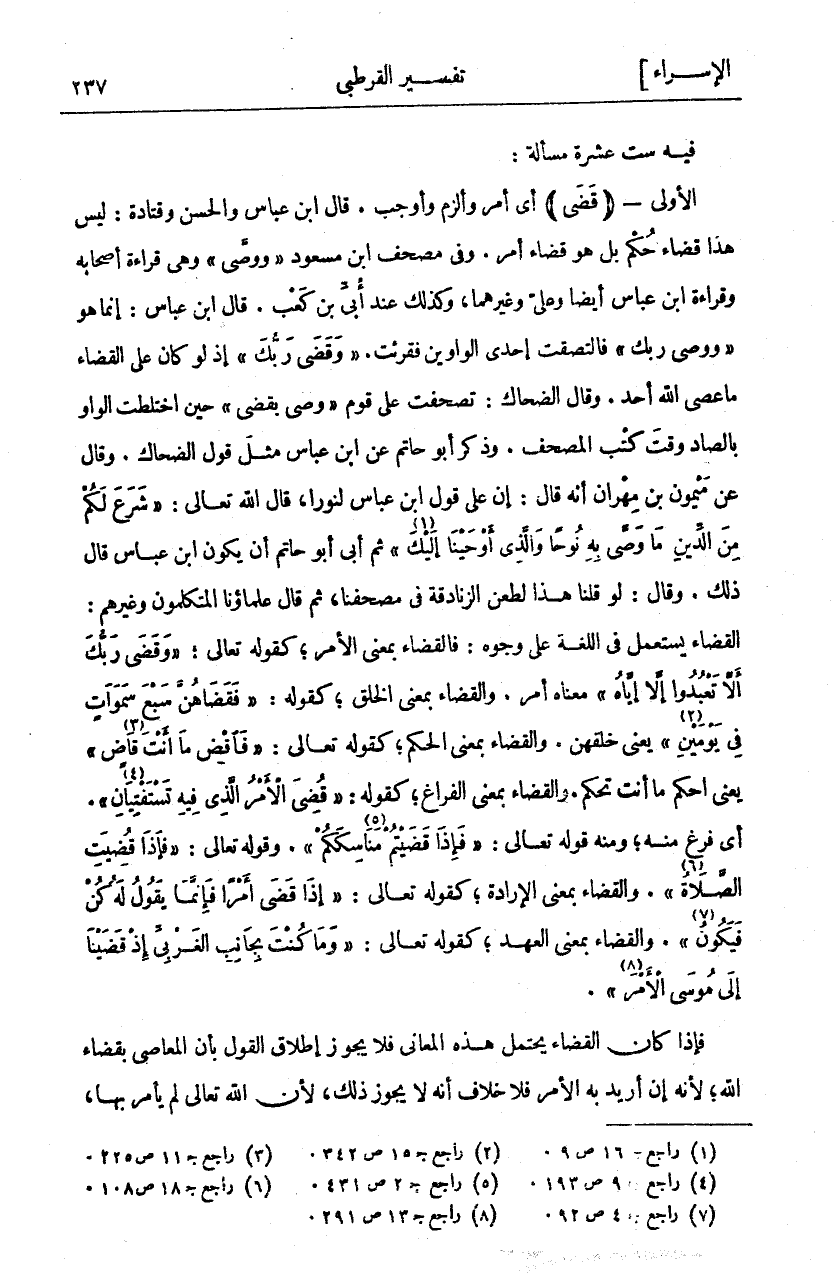 الإســراء ] تفســير القرطبى ٢٣٧
فيــه ست عشرة مسألة :
الأولى — ﴿ قَضَى ﴾ أى أمر وألزم وأوجب . قال ابن عباس والحسن وقتادة : ليس
هذا قضاء حُكْم بل هو قضاء أمر . وفى مصحف ابن مسعود « ووصَّى » وهى قراءة أصحابه
وقراءة ابن عباس أيضا وعلىّ وغيرهما، وكذلك عند أُبىّ بن كَعْب . قال ابن عباس : إنما هو
« ووصى ربك » فالتصقت إحدى الواوين فقرئت. « وَقَضَى رَبُّكَ » إذ لو كان على القضاء
ماعصى الله أحد . وقال الضحاك : تصحفت على قوم « وصى بقضى » حين اختلطت الواو
بالصاد وقتَ كَتْب المصحف . وذكر أبو حاتم عن ابن عباس مثــلَ قول الضحاك . وقال
عن مَيْمون بن مِهْران أنه قال : إن على قول ابن عباس لنورا، قال الله تعــالى : « شَرَعَ لَكُمْ
مِنَ الدِّينِ مَا وَصَّى بِهِ نُوحًا وَالَّذِى أَوْحَيْنَا إِلَيْكَ (١) » ثم أبى أبو حاتم أن يكون ابن عبــاس قال
ذلك . وقال : لو قلنا هــذا لطعن الزنادقة فى مصحفنا، ثم قال علماؤنا المتكلمون وغيرهم :
القضاء يستعمل فى اللغــة على وجوه : فالقضاء بمعنى الأمر ؛ كقوله تعالى : «وَقَضَى رَبُّكَ
أَلَّا تَعْبُدُوا إِلَّا إِيَّاهُ » معناه أمر . والقضاء بمعنى الخلق ؛ كقوله : « فَقَضَاهُنَّ سَبْعَ سَمَوَاتٍ
فِى يَوْمَيْنِ (٢) » يعنى خلقهن . والقضاء بمعنى الحكم؛ كقوله تعــالى : « فَاقْضِ مَا أَنْتَ قَاضٍ (٣) »
يعنى احكم ما أنت تحكم. والقضاء بمعنى الفراغ؛ كقوله : « قُضِىَ الْأَمْرُ الَّذِى فِيهِ تَسْتَفْتِيَانِ (٤) ».
أى فرغ منــه؛ ومنه قوله تعــالى : « فَإِذَا قَضَيْتُمْ مَنَاسِكَكُمْ (٥) » . وقوله تعالى : «فَإِذَا قُضِيَتِ
الصَّــلَاةُ (٦) » . والقضاء بمعنى الإرادة ؛ كقوله تعــالى : « إِذَا قَضَى أَمْرًا فَإِنَّمَا يَقُولُ لَهُ كُنْ
فَيَكُونُ (٧) » . والقضاء بمعنى العهــد ؛ كقوله تعــالى : « وَمَا كُنْتَ بِجَانِبِ الغَرْبِىِّ إِذْ قَضَيْنَا
إِلَى مُوسَى الْأَمْرَ (٨) » .
فإذا كان القضاء يحتمل هــذه المعانى فلا يجوز إطلاق القول بأن المعاصى بقضاء
الله؛ لأنه إن أريد به الأمر فلا خلاف أنه لا يجوز ذلك، لأن الله تعالى لم يأمر بها،
(١) راجع جـ ١٦ ص ٩ . (٢) راجع جـ ١٥ ص ٣٤٢ . (٣) راجع جـ ١١ ص ٢٢٥ .
(٤) راجع جـ ٩ ص ١٩٣ . (٥) راجع جـ ٢ ص ٤٣١ . (٦) راجع جـ ١٨ ص ١٠٨ .
(٧) راجع جـ ٤ ص ٩٢ . (٨) راجع جـ ١٣ ص ٢٩١ .